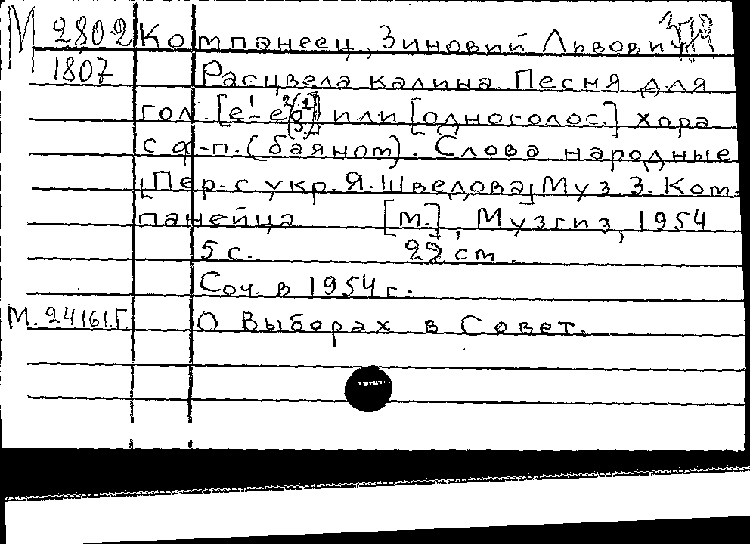 М 2802 Компанеец, Зиновий Львович
1807 Расцвела калина Песня для
гол [e¹-e²] или [одноголос.] хора
с ф-п. (баяном). Слова народные
[Пер. с укр. Я. Шведова] Муз. З. Ком-
панейца [М.], Музгиз, 1954
5 с. 29 см.
Соч. в 1954 г.
М. 24161 Г. О Выборах в Совет.